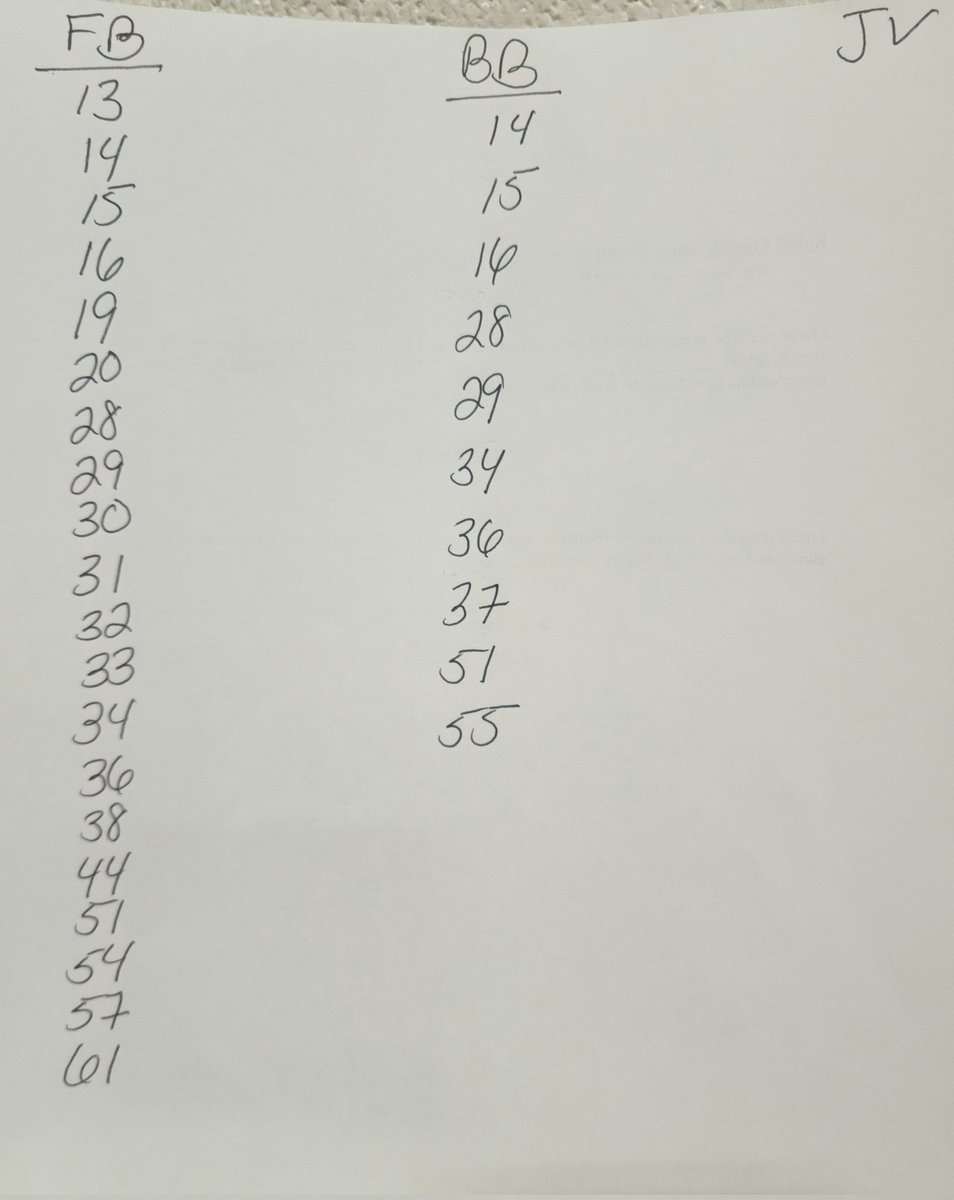 FB
13
14
15
16
19
20
28
29
30
31
32
33
34
36
38
44
51
54
57
61
BB
14
15
16
28
29
34
36
37
51
55
JV